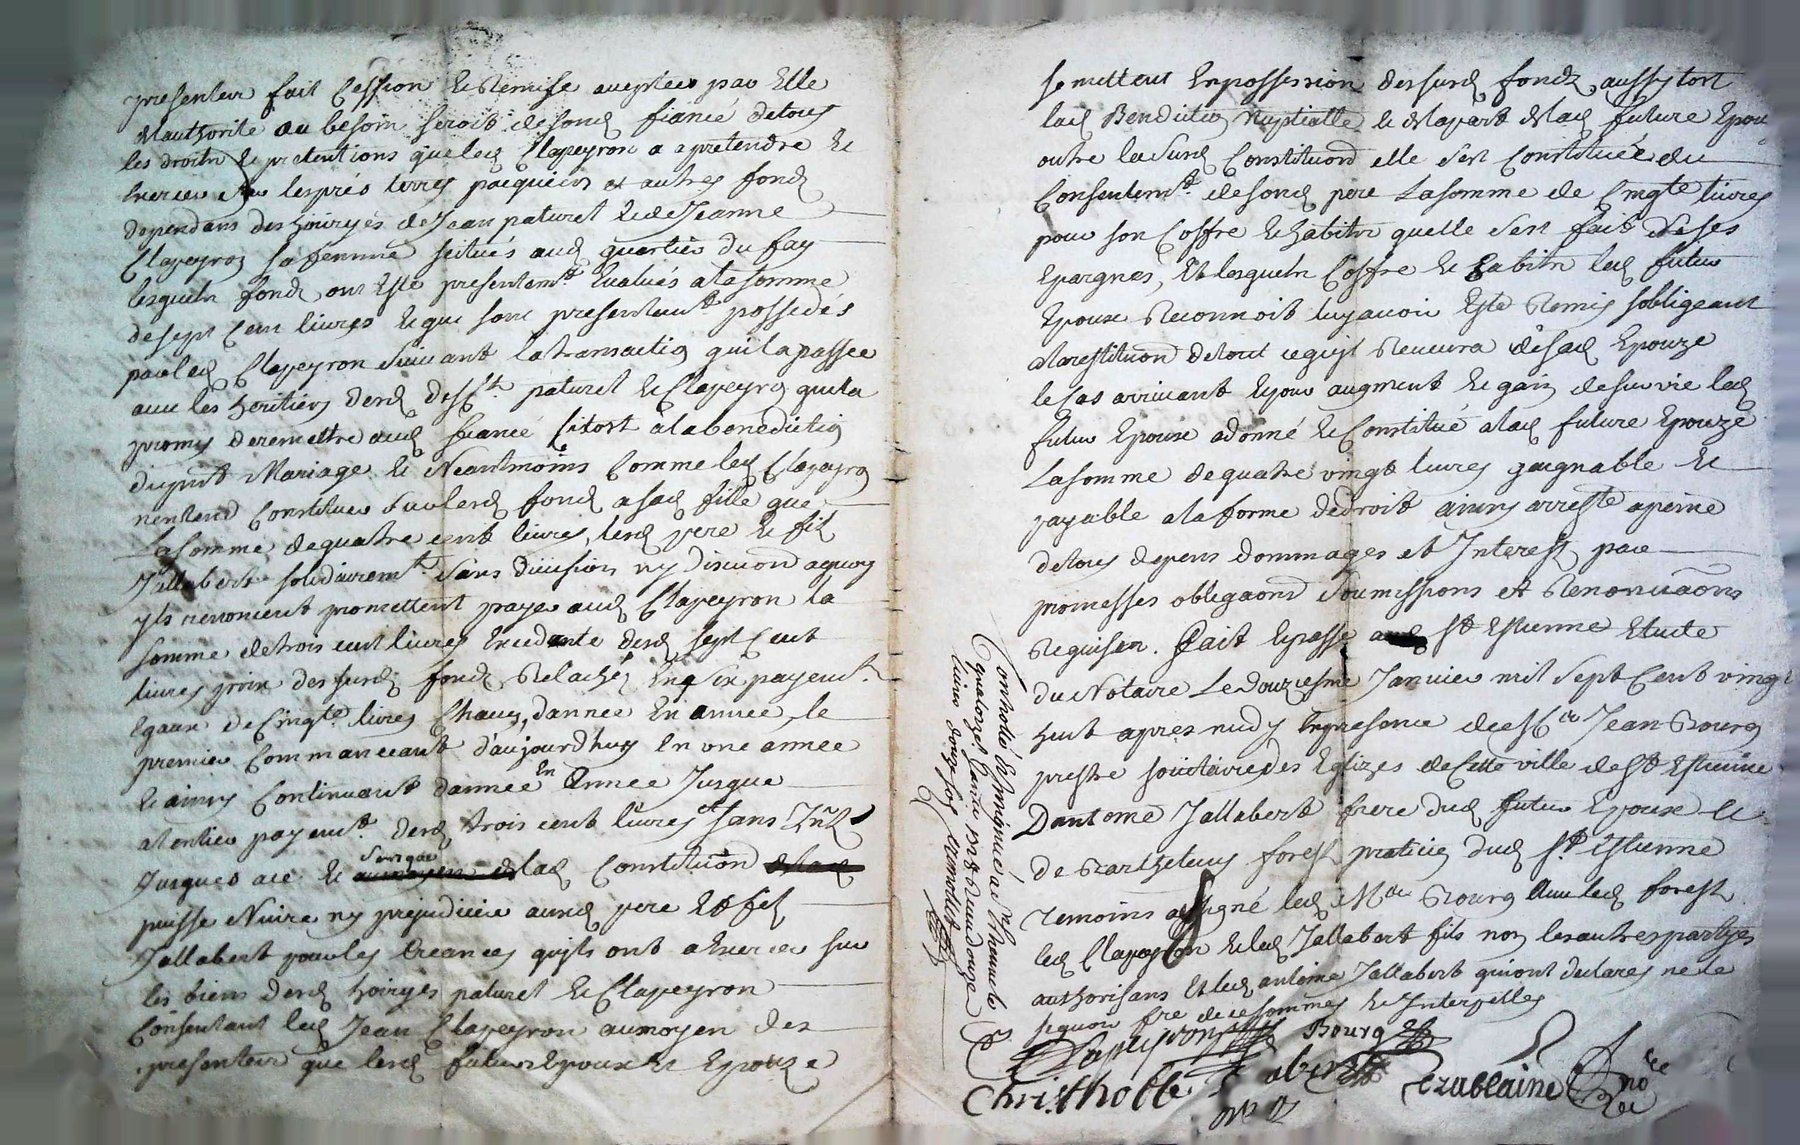 presenter fait Cession & Remise aceptées par Elle
dlauthorité au besoin seroit desond fiancé detous
les droits & pretentions queled Clapeyron a apretendre &
Exercer sur lesprés terres paquiers et autres fondz
dependans des hoiryes deJean paturel & deJeanne
Clapeyron sa femme scitués aud quartier du fay
lesquels fondz ont Esté presentemt Evalués alasomme
desept Cent livres & qui sont presentemt possedés
parled Clapeyron suivant latransaction quila passée
avec les heritiers desd paturel & Clapeyron quila
promis deremettre aud fiancé sitost alabenediction
dupnt Mariage & Neantmoins Comme led Clapeyron
nentend Constituer surlesd fondz asad fille que
Lasomme dequatre cent livres, lesd pere & fils
Jallabert solidairemt sans division ny discution aquoy
yls renoncent promettent payer aud Clapeyron la
somme detrois cent livres Excedante desd sept Cent
livres prix desusd fondz Relachés En six payemts
Egaux deCinqte livres Chacun, dannée En année, le
premier Commanceant d'aujourdhuy En une année
& ainsy Continuant dannée En Année Jusque
alentier payemt desd trois cent livres sans Intt
Jusques ace & sans que lad Constitution
puisse Nuire ny prejudicier auxd pere Et fils
Jallabert pour les Creances quyls ont a Exercer sur
les biens desd hoiryes paturel & Clapeyron
Consentant led Jean Clapeyron aumoyen des
presentes que lesd futurs Epoux & Epouze
se mettent Enpossession desusd fondz aussytost
lad Benediction Nuptialle & dlapart dlad future Epouze
outre lasusd Constitution elle sest Constituée du
Consentemt desond pere Lasomme de Cinqte livres
pour son Coffre & habits quelle sest fait de ses
Epargnes, Et lesquels Coffre & habits led futur
Epoux Reconnoit luyavoir Esté Remis sobligeant
alarestitution detout cequil Recevra desad Epouze
lecas arrivant & pour augment & gain desurvie led
futur Epoux adonné & Constitué alad future Epouze
Lasomme dequatre vingt livres gaignable &
payable ala forme dedroit ainsy arresté apeine
detous depens dommages et Interest par
promesses obligaons soumissions et Renonciaons
Requises. Fait & passé St Estienne Etude
du Notaire Le douziesme Janvier mil sept Cent vingt
huit apres midy Enpresance de Jean Bourg
prestre sociétaire des Eglizes de Cette ville de St Estienne
Dantoine Jallabert frere dud futur Epoux &
de Barthelemy forest praticien dud St Estienne
Temoins a signé led Mre Bourg Avec led forest
led Clapeyron & led Jallabert fils non lesautres partyes
authorisans Et led antoine Jallabert quiont declarés nele
sçavoir fre de ce sommés & Interpellés
Clapeyron Bourg
Christholle Jalabert
Crublaine no re
Controllé & insinué a St Chaumond le
quatorze Janvier 1728 Receu douze
livres douze sols